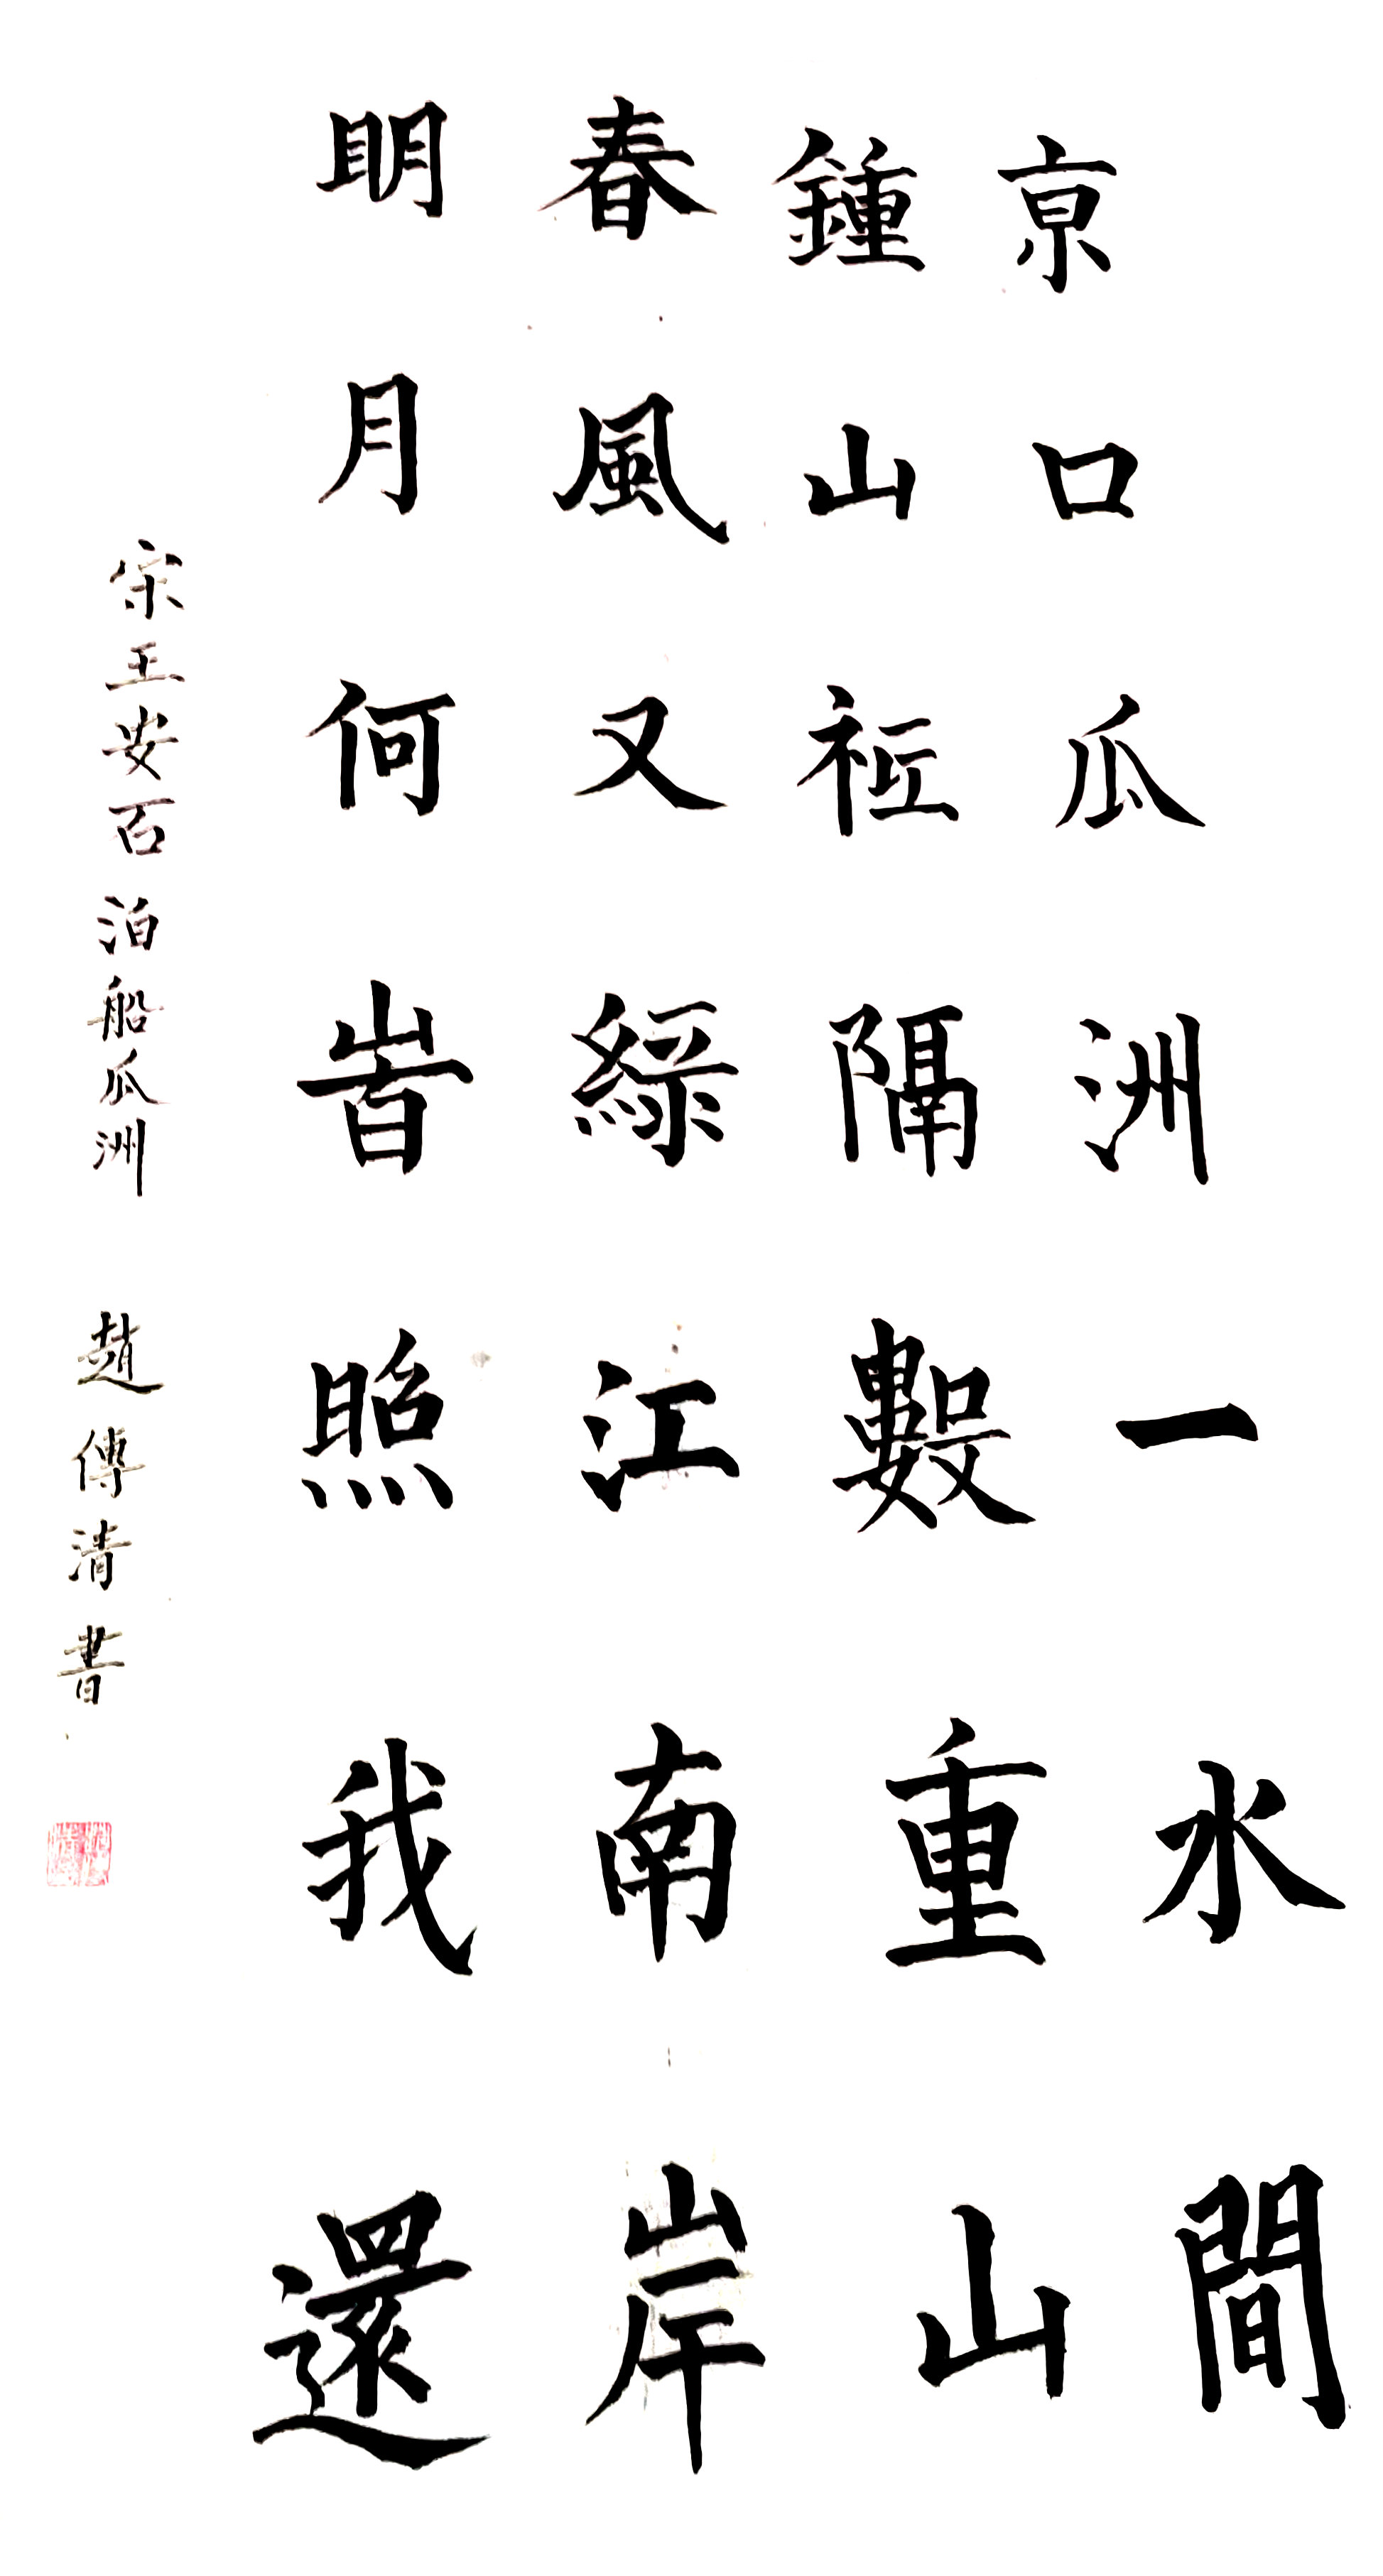 亰口瓜洲一水間
鍾山祗隔數重山
春風又綠江南岸
眀月何旹照我還
宋王安石泊船瓜洲 趙傳清書